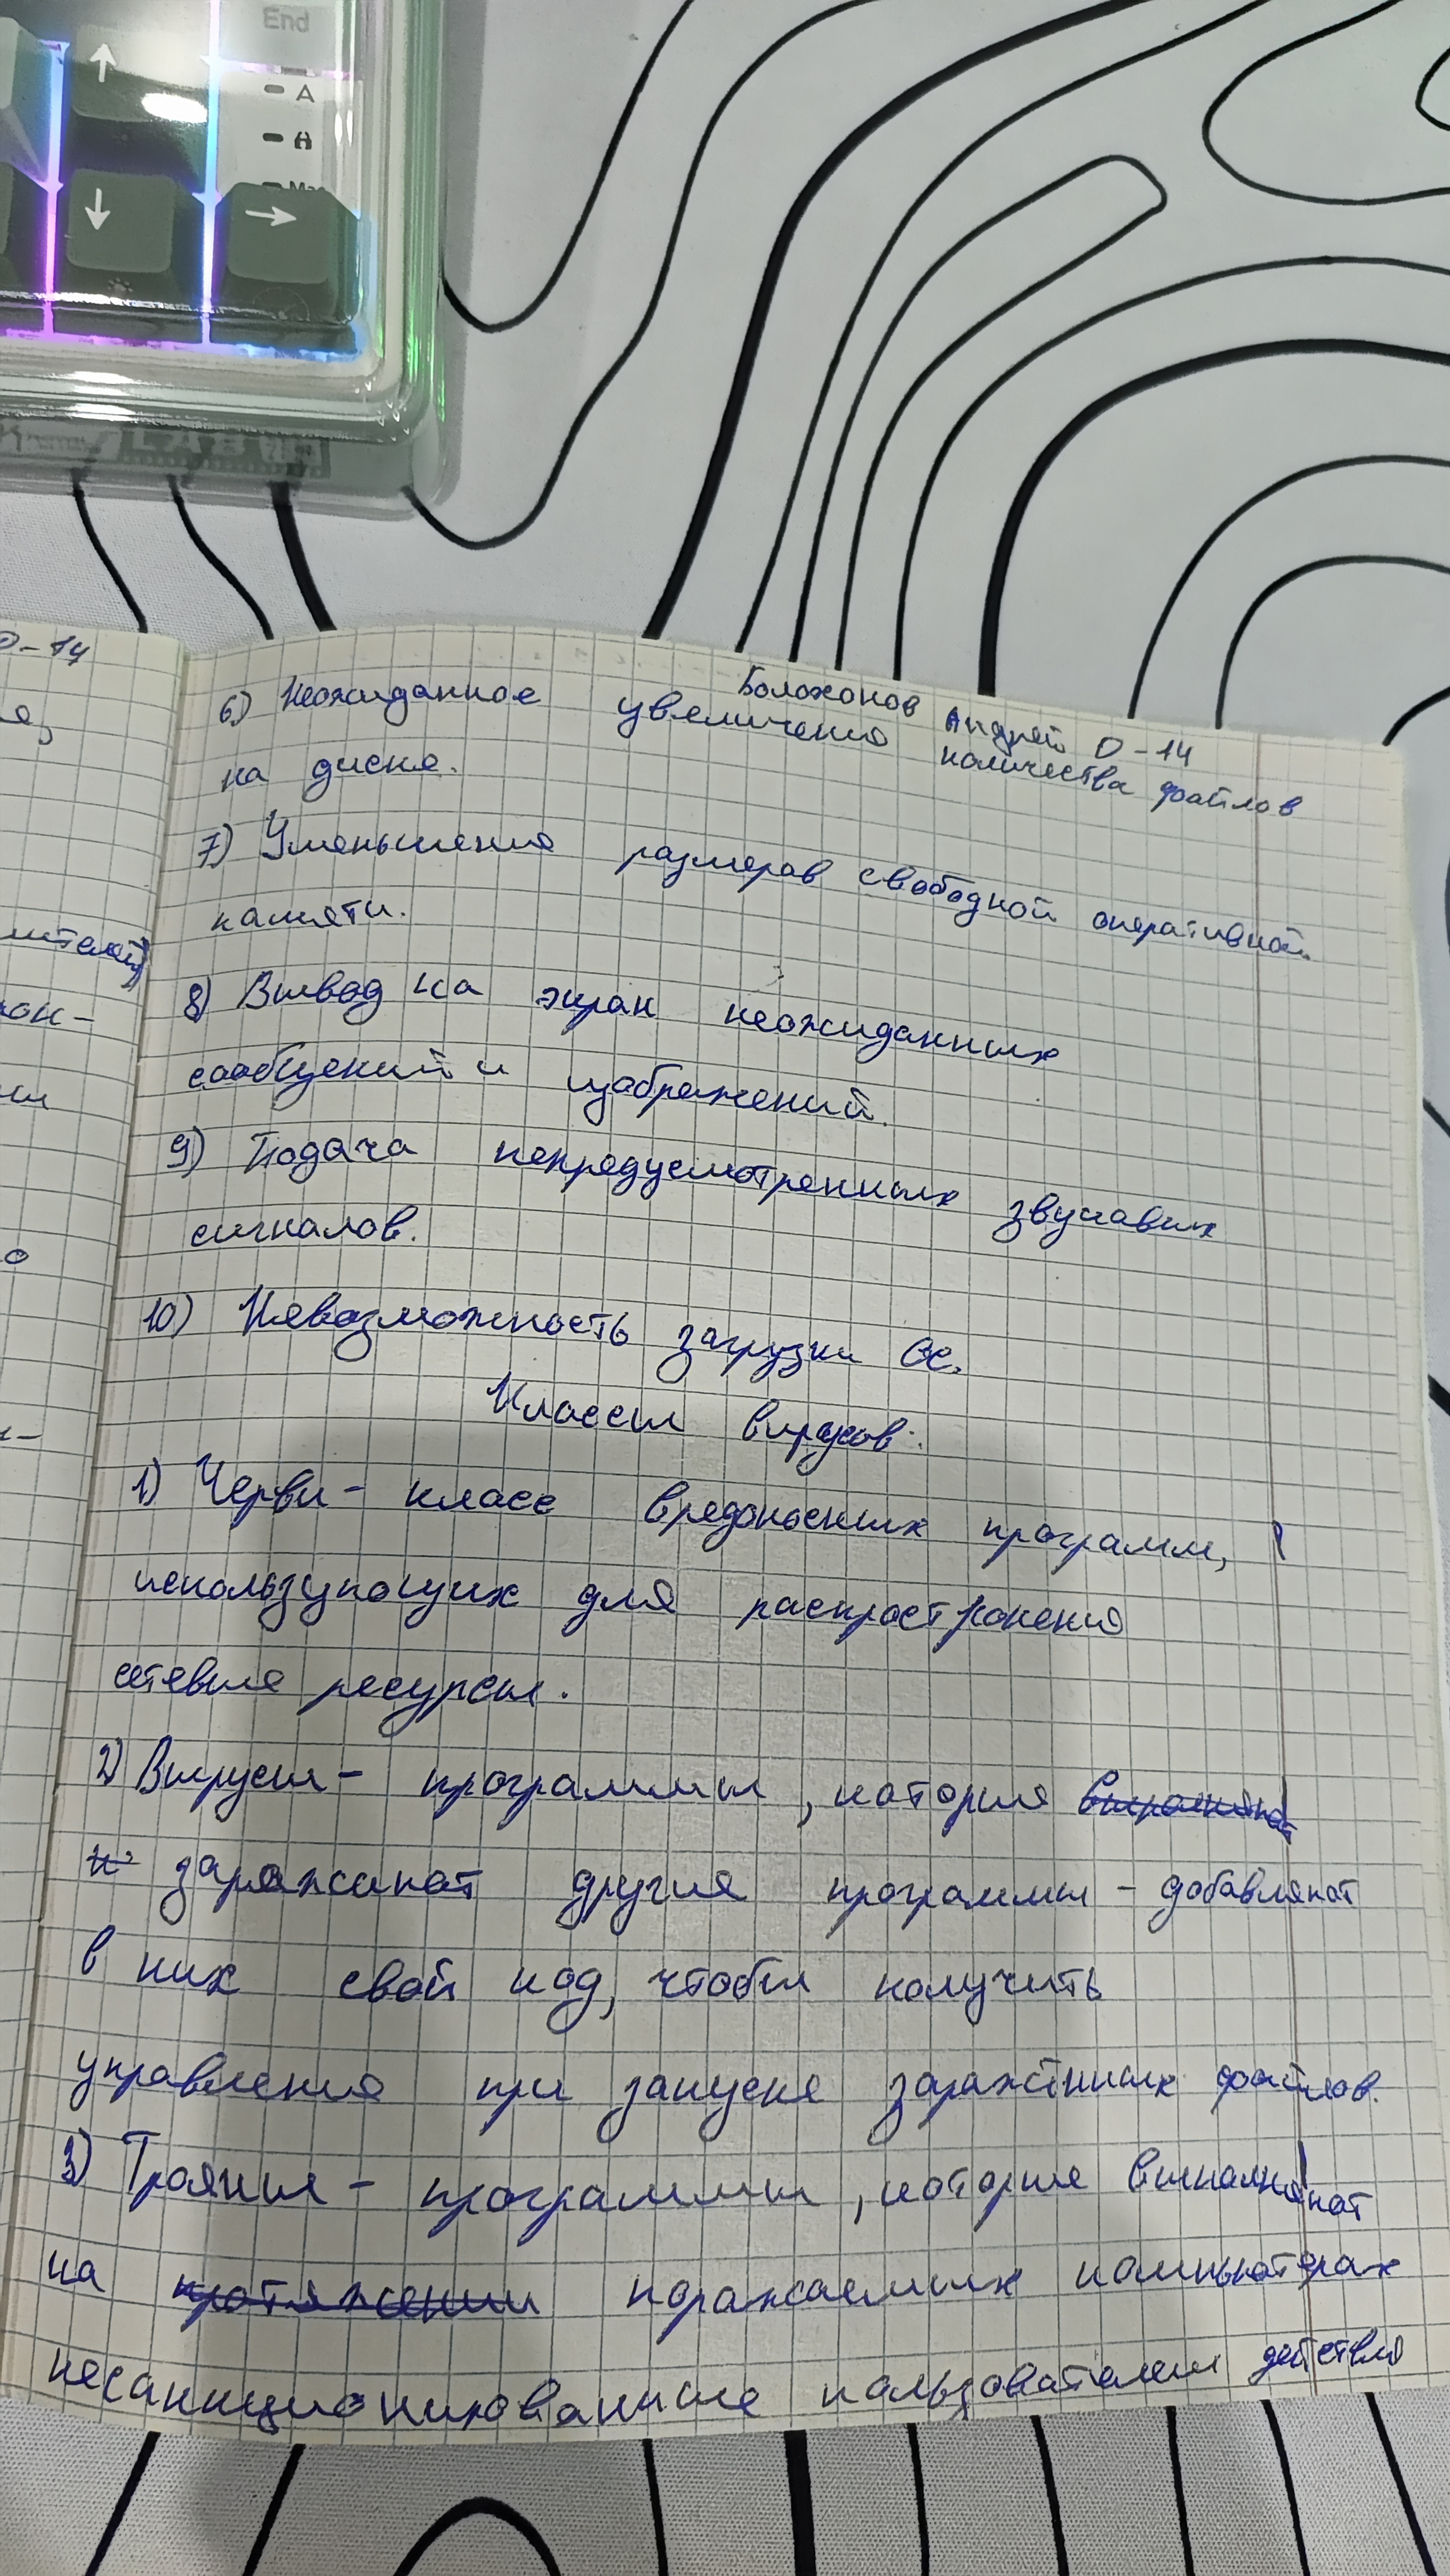 End
A
D-14
я,
ителей)
кон-
ми
о
Болохонов Андрей D-14
6) Неожиданное увеличение количества файлов
на диске.
7) Уменьшение размеров свободной оперативной
памяти.
8) Вывод на экран неожиданных
сообщений и изображений.
9) Подача непредусмотренных звуковых
сигналов.
10) Невозможность загрузки ОС.
Классы вирусов:
1) Черви - класс вредоносных программ,
использующих для распространения
сетевые ресурсы.
2) Вирусы - программы, которые
заражают другие программы - добавляют
в них свой код, чтобы получить
управление при запуске заражённых файлов.
3) Трояны - программы, которые выполняют
на протяжении поражаемых компьютерах
несанкционированные пользователем действия